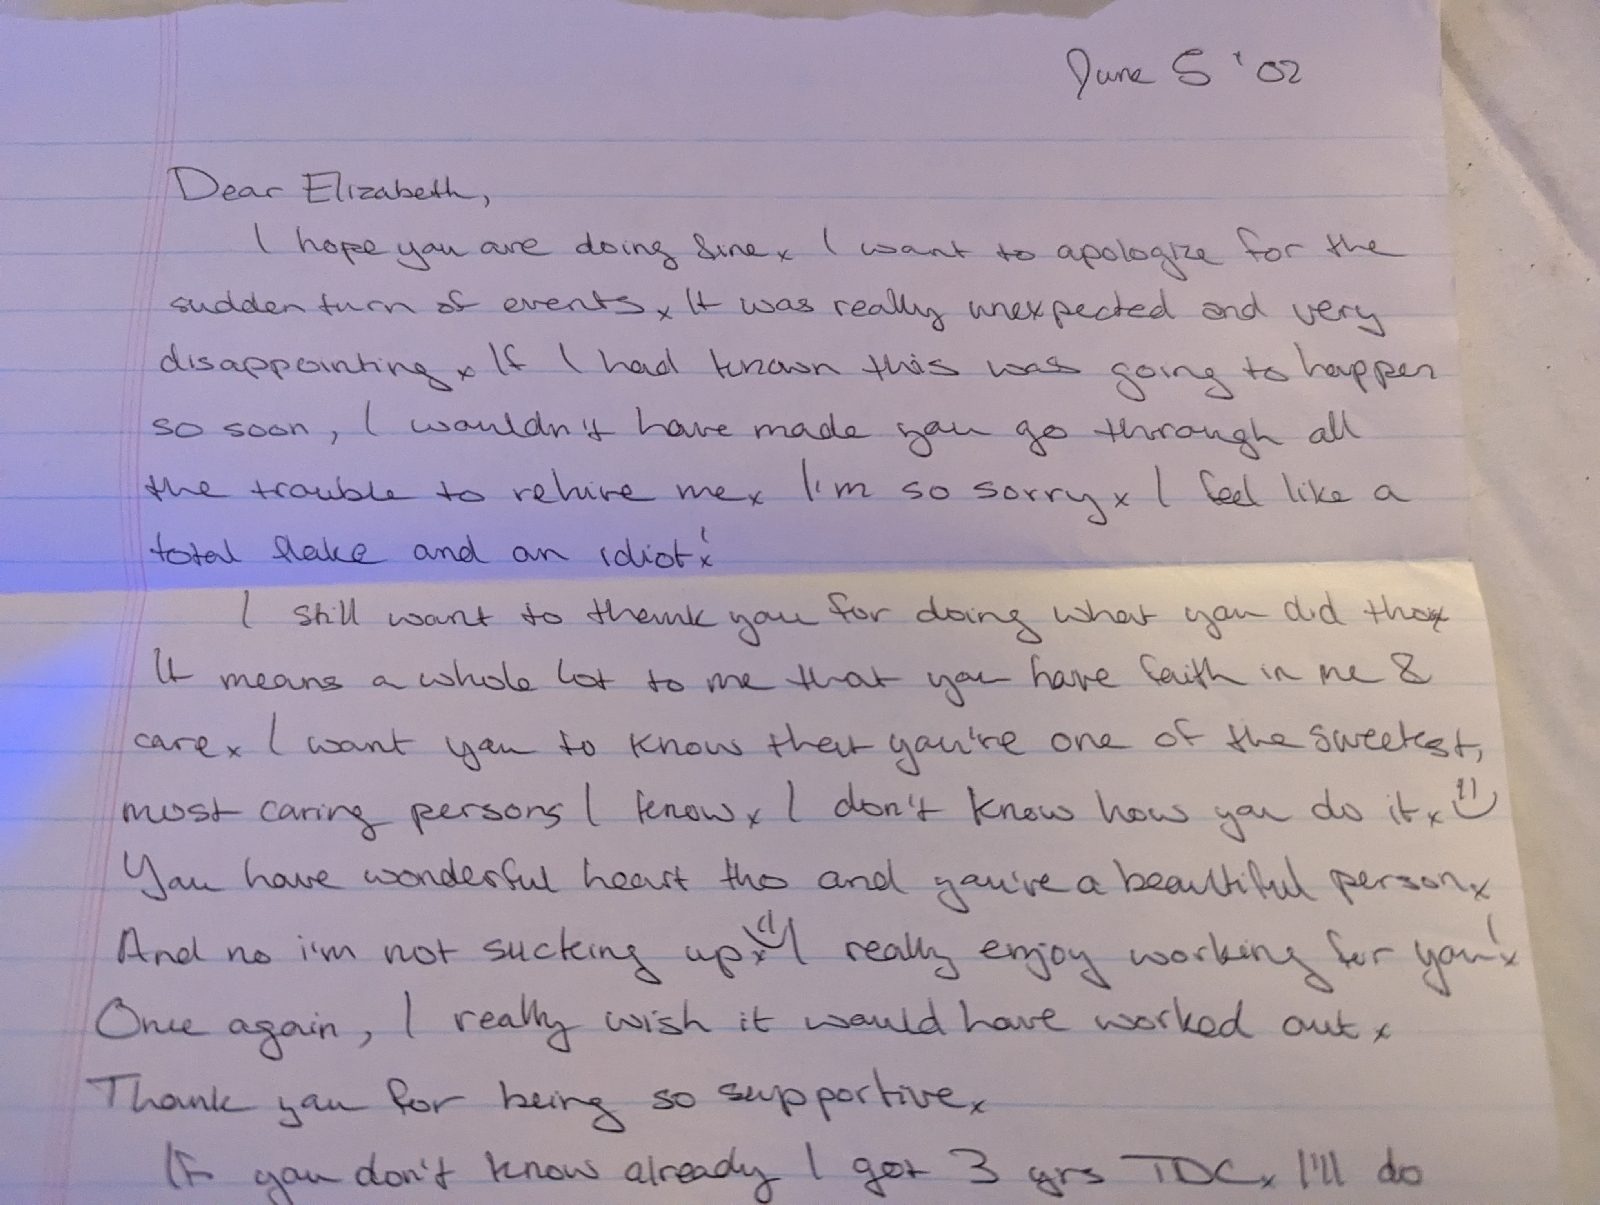 June 5 '02
Dear Elizabeth,
I hope you are doing fine x I want to apologize for the
sudden turn of events x It was really unexpected and very
disappointing x If I had known this was going to happen
so soon, I wouldn't have made you go through all
the trouble to rehire me x I'm so sorry x I feel like a
total flake and an idiot!
I still want to thank you for doing what you did tho x
It means a whole lot to me that you have faith in me &
care x I want you to know that you're one of the sweetest,
most caring persons I know x I don't know how you do it x :)
You have wonderful heart tho and you're a beautiful person x
And no i'm not sucking up x :) I really enjoy working for you!
Once again, I really wish it would have worked out x
Thank you for being so supportive x
If you don't know already I got 3 yrs TDC x I'll do